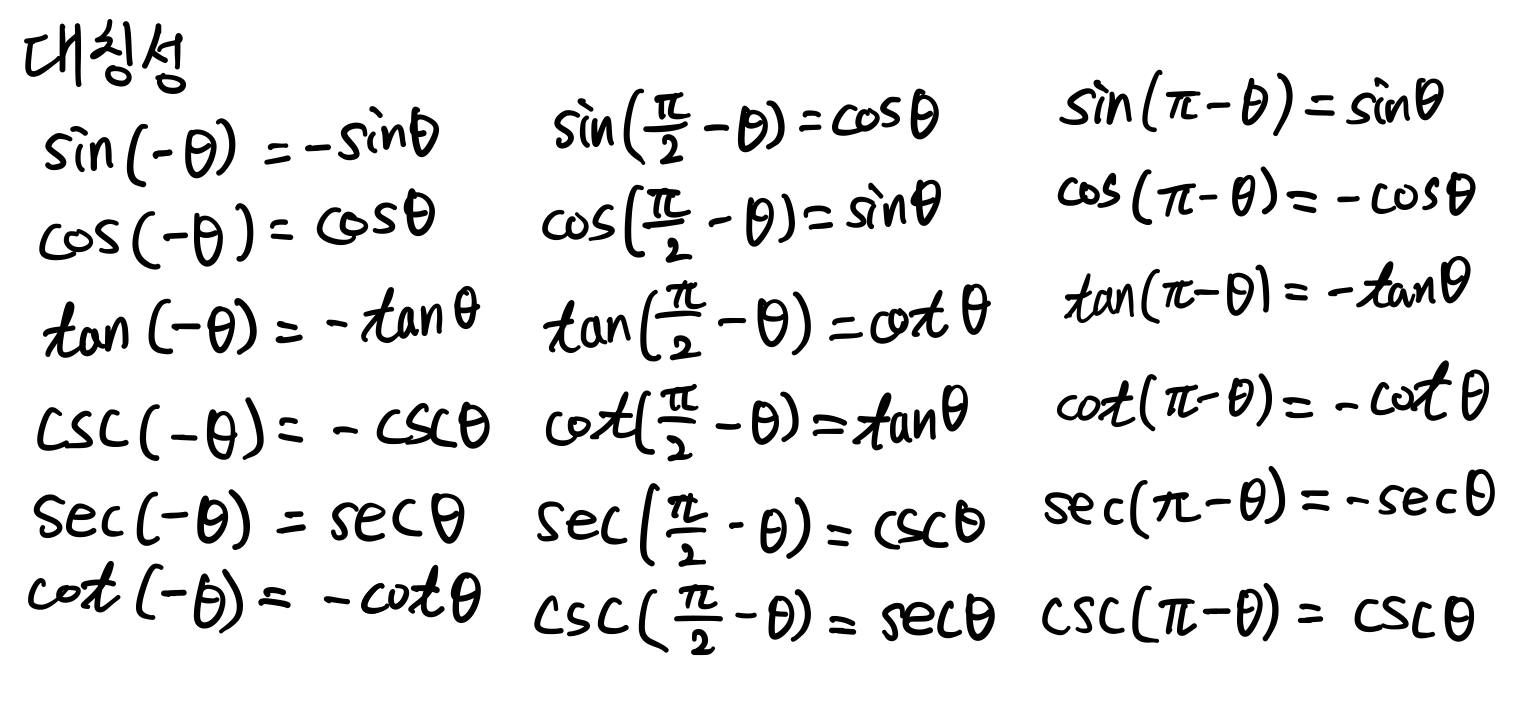 대칭성
sin(-θ) = -sinθ
cos(-θ) = cosθ
tan(-θ) = -tanθ
csc(-θ) = -cscθ
sec(-θ) = secθ
cot(-θ) = -cotθ
sin(π/2 - θ) = cosθ
cos(π/2 - θ) = sinθ
tan(π/2 - θ) = cotθ
cot(π/2 - θ) = tanθ
sec(π/2 - θ) = cscθ
csc(π/2 - θ) = secθ
sin(π - θ) = sinθ
cos(π - θ) = -cosθ
tan(π - θ) = -tanθ
cot(π - θ) = -cotθ
sec(π - θ) = -secθ
csc(π - θ) = cscθ